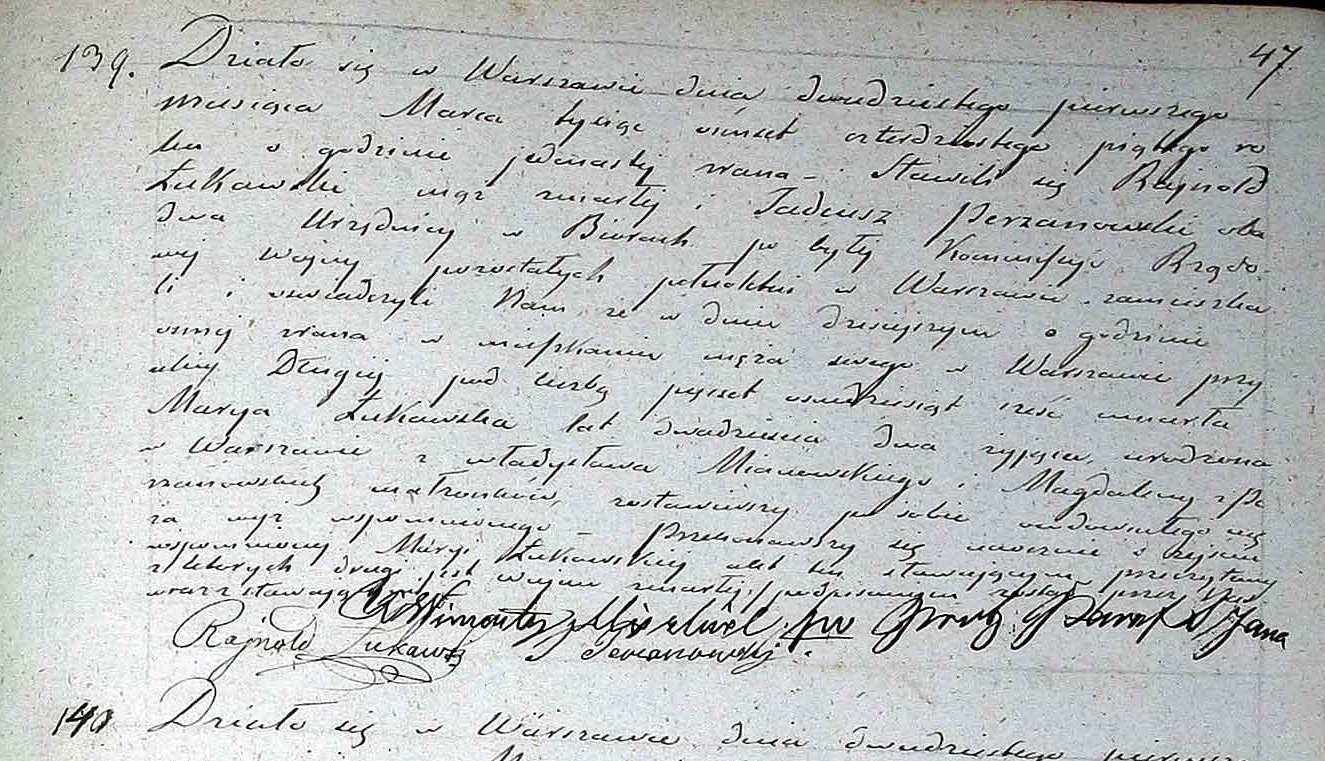 47
139. Działo się w Warszawie dnia dwudziestego pierwszego
miesiąca Marca tysiąc ośmset czterdziestego piątego ro
ku o godzinie jedenastej zrana – Stawili się Rajnold
Łukawski mąż zmarłej i Tadeusz Perzanowski oba
dwa Urzędnicy w Biurach po byłej Kommissyi Rządo-
wej Wojny pozostałych w Warszawie zamieszka
li i oświadczyli Nam że w dniu dzisiejszym o godzinie
osmej zrana w mieszkaniu męża swego w Warszawie przy
ulicy Długiej pod liczbą pięset osmdziesiąt sześć umarła
Marya Łukawska lat dwadzieścia dwa żyjąca, urodzona
w Warszawie z Władysława Mianowskiego i Magdaleny z Pe
rzanowskich małżonków, zostawiwszy po sobie owdowiałego mę
ża wyż wspomnionego – Przekonawszy się naocznie o zejściu
wspomnionej Maryi Łukawskiej akt ten stawającym przeczytany
z których drugi jest wujem zmarłej, podpisanym został przez Nas
wraz z stawającymi
Paraf S Jana
Rajnold Łukawski T Perzanowski.
140 Działo się w Warszawie dnia dwudziestego